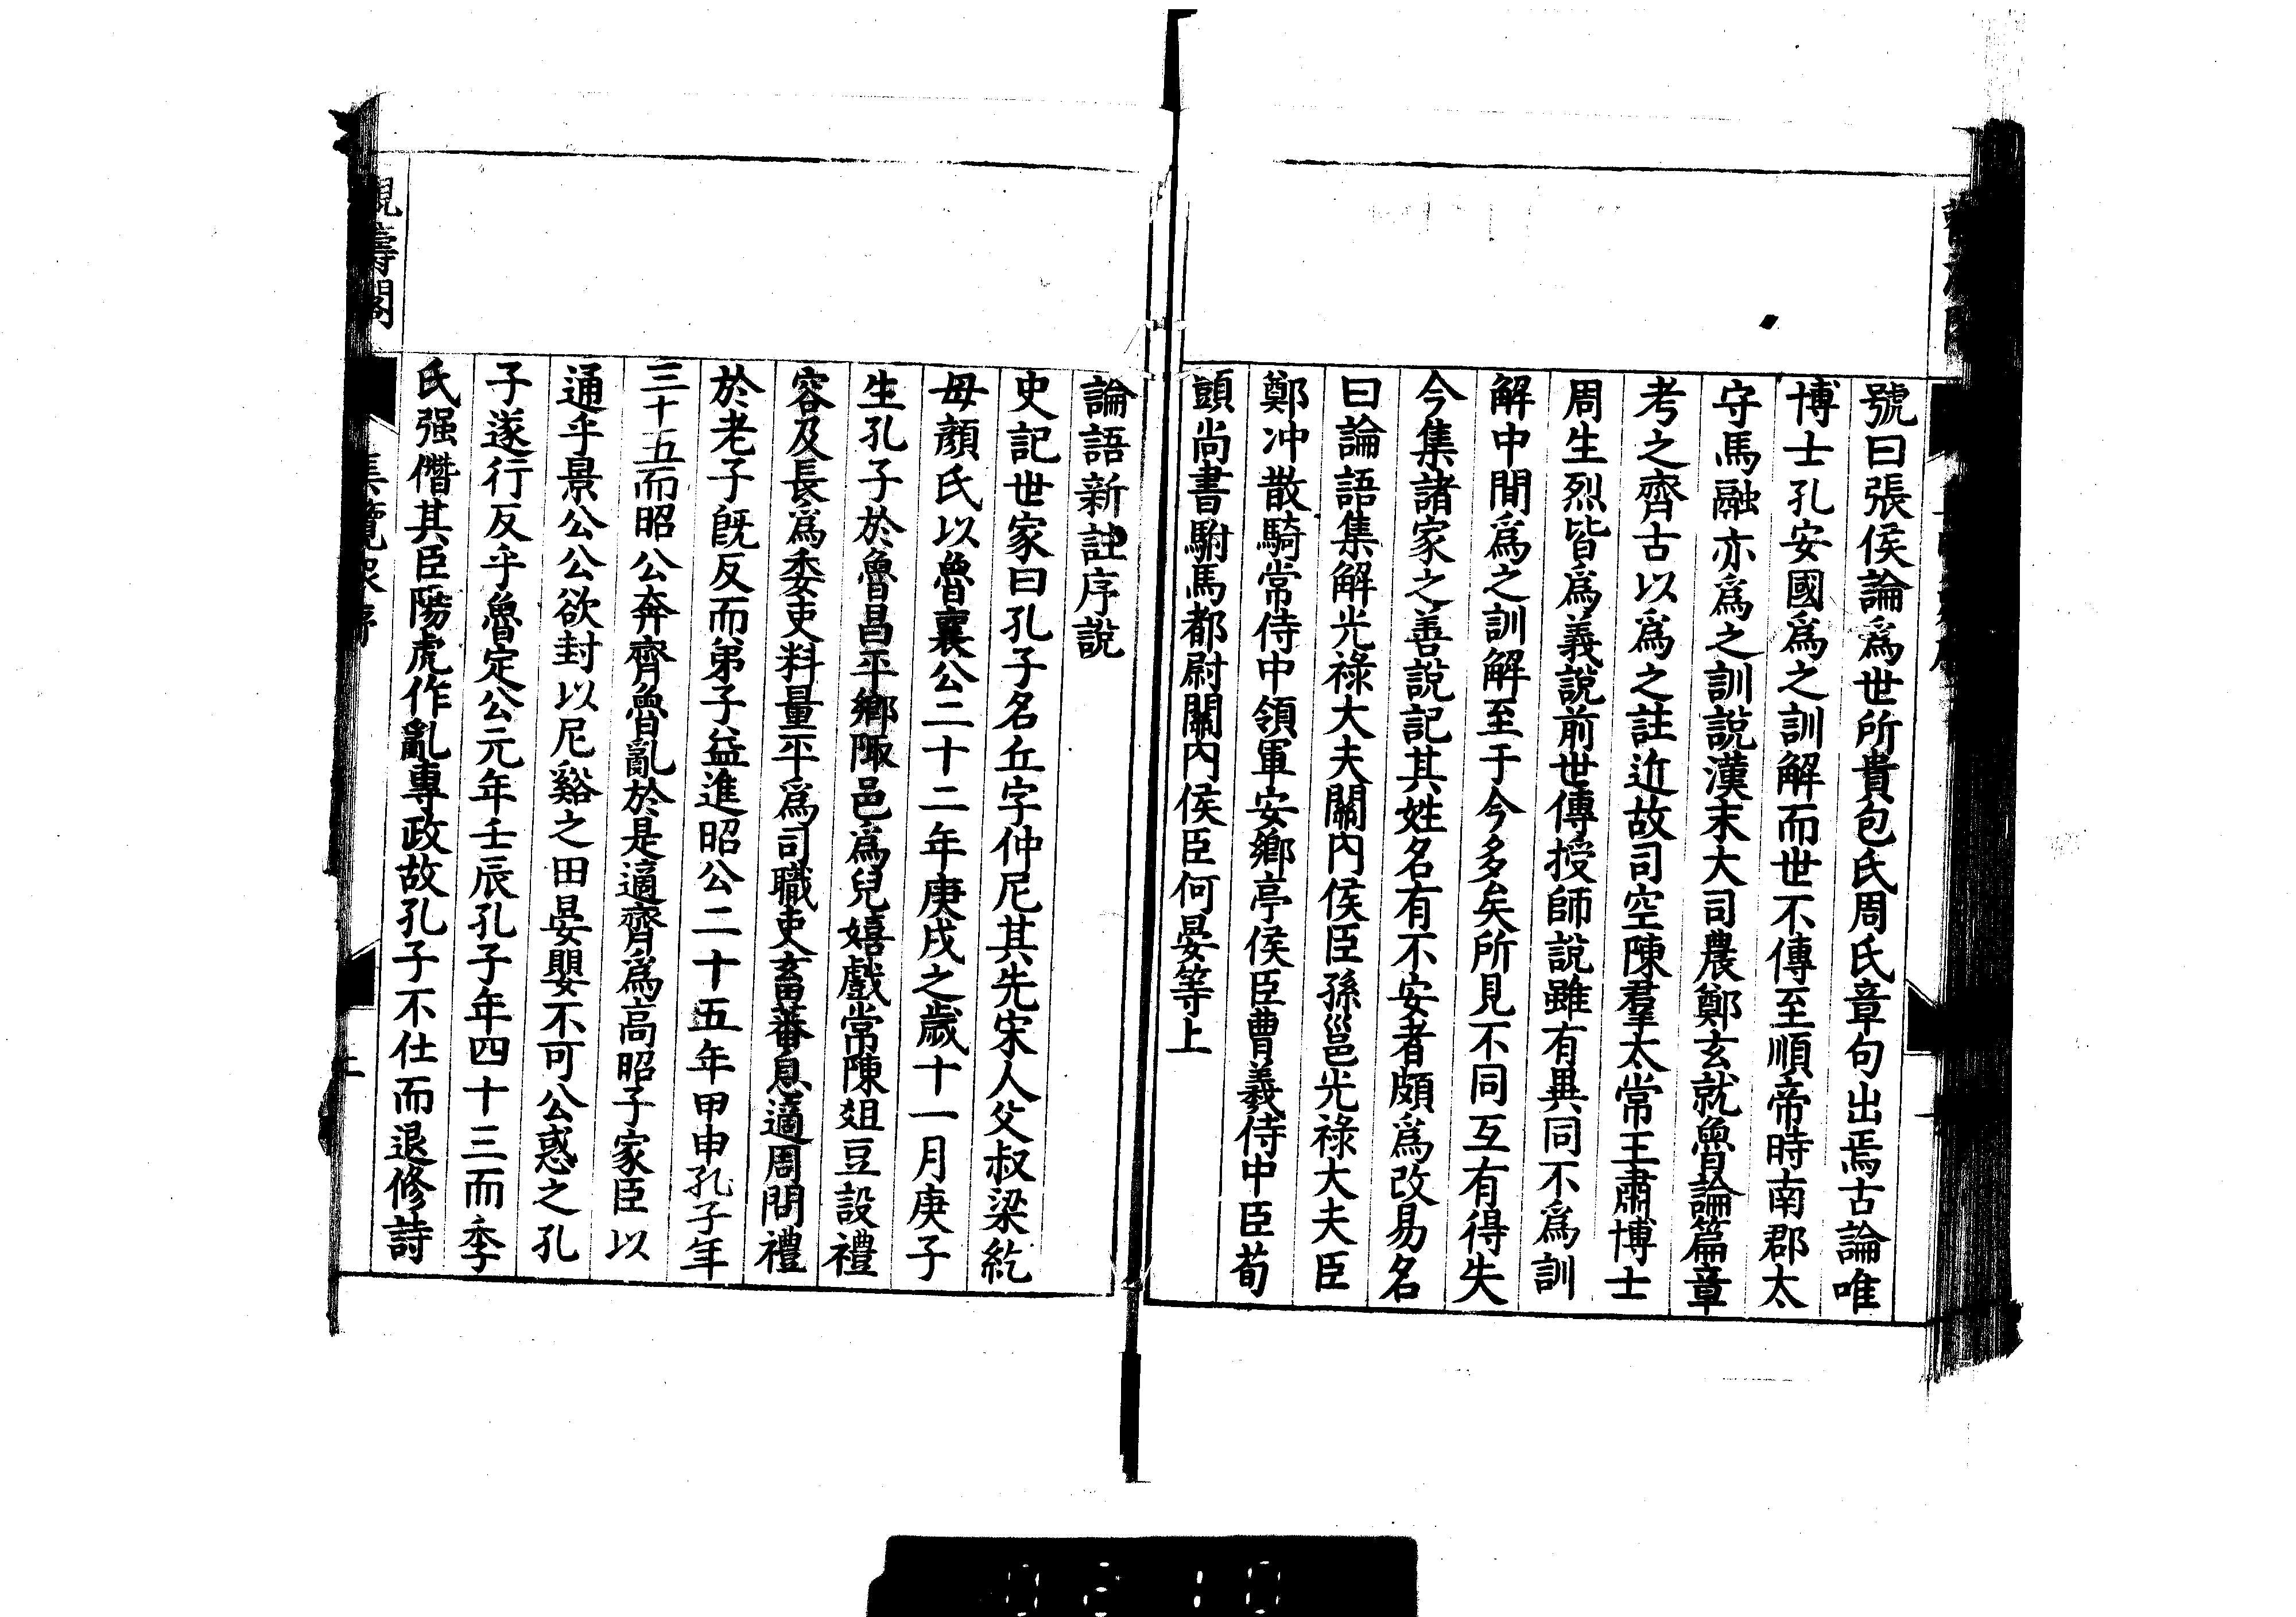 號曰張侯論爲世所貴包氏周氏章句出焉古論唯
博士孔安國爲之訓解而世不傳至順帝時南郡太
守馬融亦爲之訓説漢末大司農鄭玄就魯論篇章
考之齊古以爲之註近故司空陳羣太常王肅博士
周生烈皆爲義説前世傳授師説雖有異同不爲訓
解中間爲之訓解至于今多矣所見不同互有得失
今集諸家之善説記其姓名有不安者頗爲改易名
曰論語集解光祿大夫關內侯臣孫邕光祿大夫臣
鄭冲散騎常侍中領軍安鄉亭侯臣曹羲侍中臣荀
顗尚書駙馬都尉關內侯臣何晏等上
論語新註序説
史記世家曰孔子名丘字仲尼其先宋人父叔梁紇
母顏氏以魯襄公二十二年庚戌之歲十一月庚子
生孔子於魯昌平鄉陬邑爲兒嬉戲常陳俎豆設禮
容及長爲委吏料量平爲司職吏畜蕃息適周問禮
於老子旣反而弟子益進昭公二十五年甲申孔子年
三十五而昭公奔齊魯亂於是適齊爲高昭子家臣以
通乎景公公欲封以尼谿之田晏嬰不可公惑之孔
子遂行反乎魯定公元年壬辰孔子年四十三而季
氏强僭其臣陽虎作亂專政故孔子不仕而退修詩